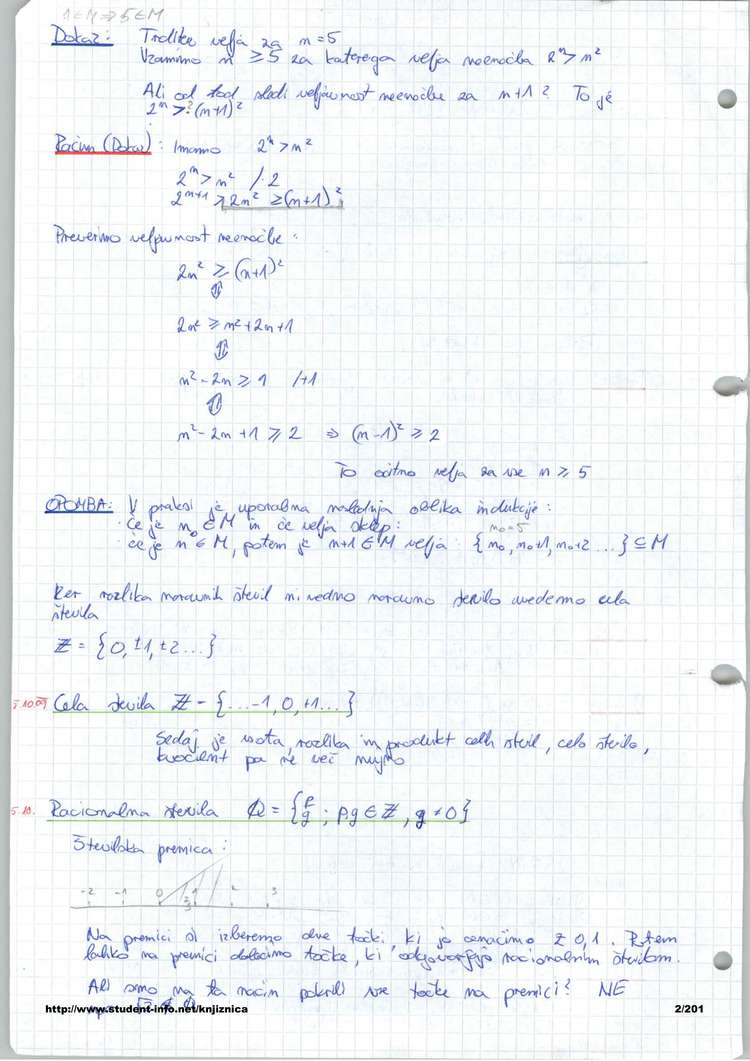 1 ∈ M ⇒ 5 ∈ M
Dokaz: Trditev velja za n=5
Vzamimo n ≥ 5 za katerega velja neenačba 2ⁿ > n²
Ali od tod sledi veljavnost neenačbe za n+1? To je
2ⁿ >? (n+1)²
Račun (Dokaz): Imamo 2ⁿ > n²
2ⁿ > n² /·2
2ⁿ⁺¹ > 2n² ≥ (n+1)²
Preverimo veljavnost neenačbe:
2n² ≥ (n+1)²
⇕
2n² ≥ n²+2n+1
⇕
n²-2n ≥ 1 /+1
⇕
n²-2n+1 ≥ 2 ⇒ (n-1)² ≥ 2
To očitno velja za vse n ≥ 5
OPOMBA: V praksi je uporabna naslednja oblika indukcije:
če je n₀ ∈ M in če velja sklep: n₀=5
če je n ∈ M, potem je n+1 ∈ M velja: {n₀, n₀+1, n₀+2 ...} ⊆ M
Ker razlika naravnih števil ni vedno naravno število uvedemo cela
števila
ℤ = {0, ±1, ±2...}
Cela števila ℤ - {...-1, 0, +1...}
Sedaj je vsota, razlika in produkt celih števil, celo število,
kvocient pa ne več nujno
5.10. Racionalna števila ℚ = {p/q ; p,q ∈ ℤ, q ≠ 0}
Številska premica:
-2 -1 0 1 2 3
Na premici si izberemo dve točki, ki jo označimo z 0,1. Potem
lahko na premici določimo točke, ki odgovarjajo racionalnim številom.
Ali smo na ta način pokrili vse točke na premici? NE
http://www.student-info.net/knjiznica 2/201